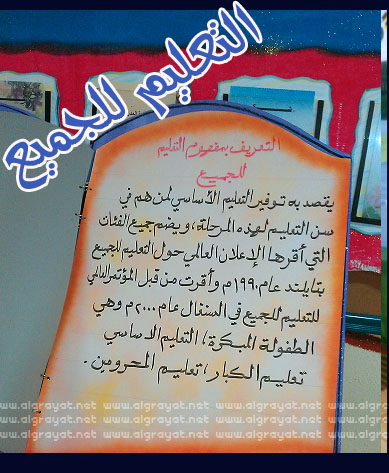 التعليم للجميع
التعريف بمفهوم التعليم
للجميع
يقصد به توفير التعليم الأساسي لمن هم في
سن التعليم لهذه المرحلة، ويضم جميع الفئات
التي أقرها الإعلان العالمي حول التعليم للجميع
بتايلند عام ١٩٩٠م وأقرت من قبل المؤتمر العالمي
للتعليم للجميع في السنغال عام ٢٠٠٠م وهي
الطفولة المبكرة، التعليم الاساسي
تعليم الكبار، تعليم المحرومين.
www.algrayat.net www.algrayat.net www.algrayat.net www.algrayat.net
www.algrayat.net www.algrayat.net www.algrayat.net www.algrayat.net